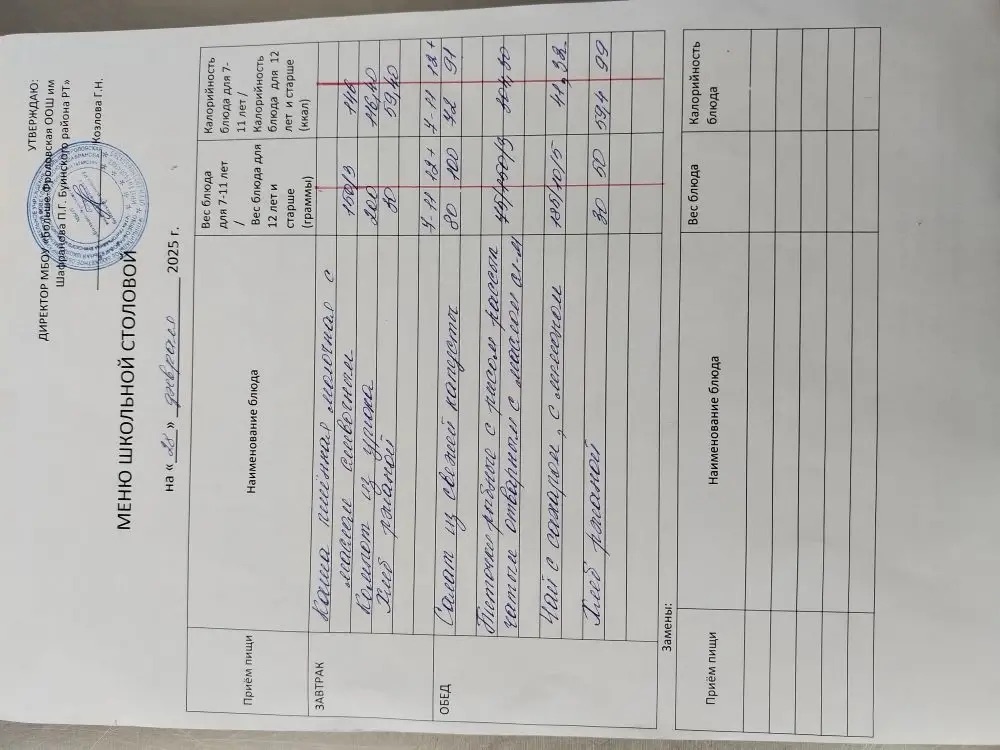 УТВЕРЖДАЮ:
ДИРЕКТОР МБОУ «Больше-Фроловская ООШ им
Шафранова П.Г. Буинского района РТ»
Козлова Г.Н.
МЕНЮ ШКОЛЬНОЙ СТОЛОВОЙ
на « 28 » февраля 2025 г.
Приём пищи Наименование блюда Вес блюда для 7-11 лет / Вес блюда для 12 лет и старше (граммы) Калорийность блюда для 7-11 лет / Калорийность блюда для 12 лет и старше (ккал)
ЗАВТРАК
Каша пшённая молочная с
маслом сливочным 150/3
Компот из урюка 200 116,40
Хлеб ржаной 30 59,40
ОБЕД 7-11 12+ 7-11 12+
Салат из свежей капусты 80 100 72 91
Биточки рыбные с рисом рассып
чатым отварным с маслом сл-м
Чай с сахаром, с лимоном 185/10/5
Хлеб ржаной 30 50 59,4 99
Замены:
Приём пищи Наименование блюда Вес блюда Калорийность блюда